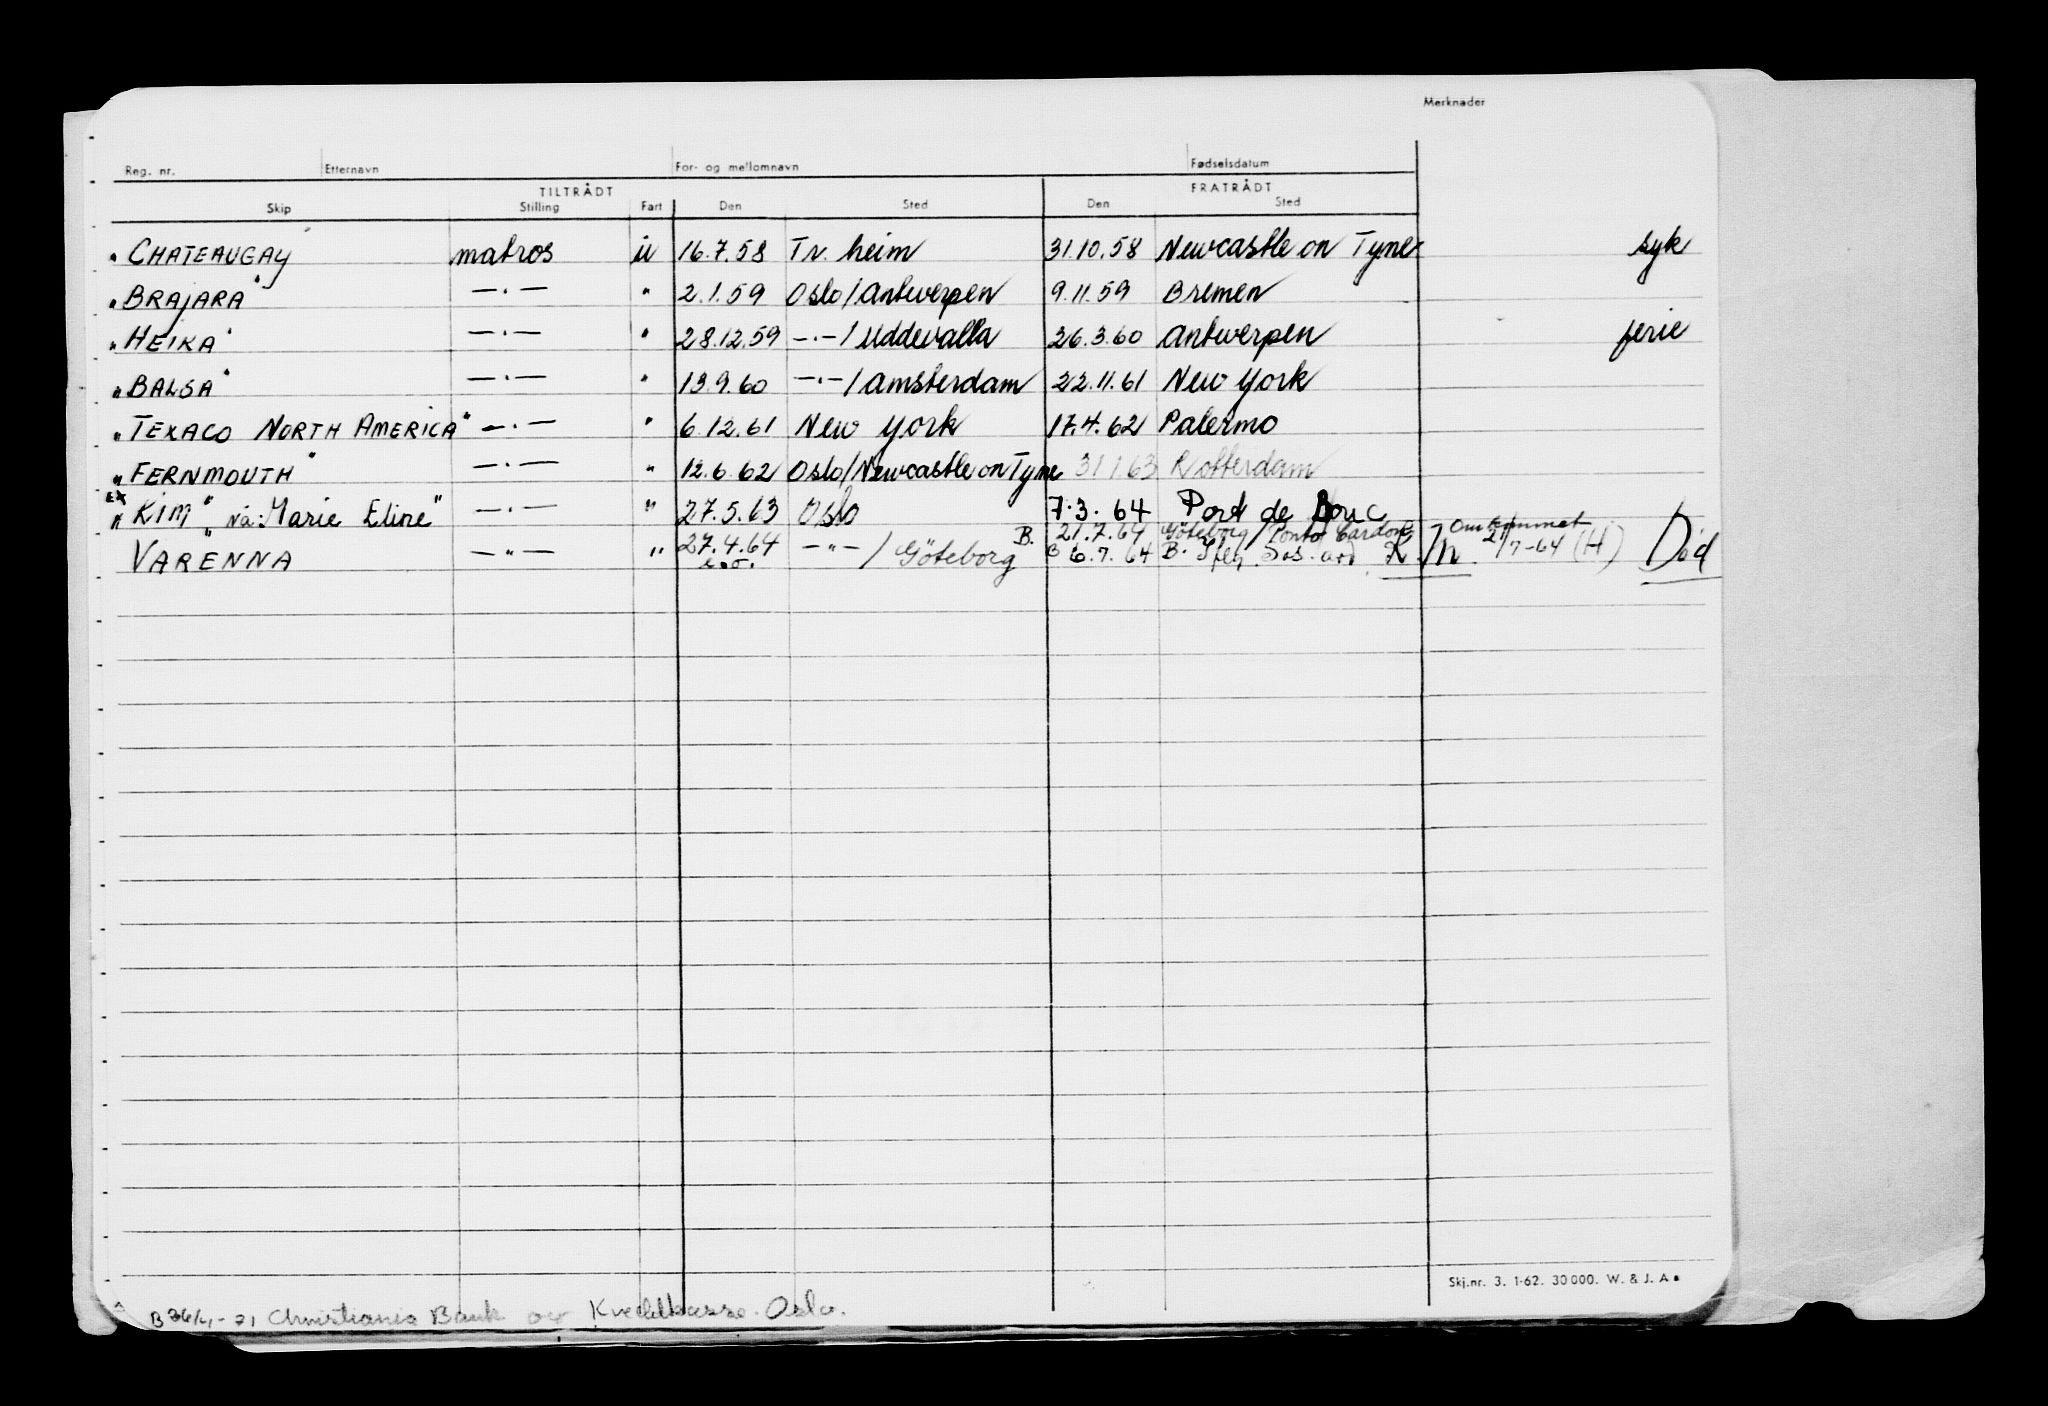 Merknader
Reg. nr. Etternavn For- og mellomnavn Fødselsdatum
TILTRÅDT FRATRÅDT
Skip Stilling Fart Den Sted Den Sted
"CHATEAUGAY" matros u 16.7.58 Tr. heim 31.10.58 Newcastle on Tyne syk
"BRAJARA" —.— " 2.1.59 Oslo/Antwerpen 9.11.59 Bremen
"HEIKA" —.— " 28.12.59 —.—/Uddevalla 26.3.60 Antwerpen ferie
"BALSA" —.— " 13.9.60 —.—/Amsterdam 22.11.61 New York
"TEXACO NORTH AMERICA" —.— " 6.12.61 New York 17.4.62 Palermo
"FERNMOUTH" —.— " 12.6.62 Oslo/Newcastle on Tyne 31.1.63 Rotterdam
ex "KIM" nå: "Marie Eline" —.— " 27.5.63 Oslo 7.3.64 Port de Bouc
B. 21.7.64 Göteborg/Ponto Cardon Omkommet
VARENNA —"— " 27.4.64 —"—/Göteborg B 6.7.64 B. 21/7-64 (H) Død
B 26/4-71 Christiania Bank og Kreditkasse. Oslo.
Skj.nr. 3. 1-62. 30 000. W. & J. A